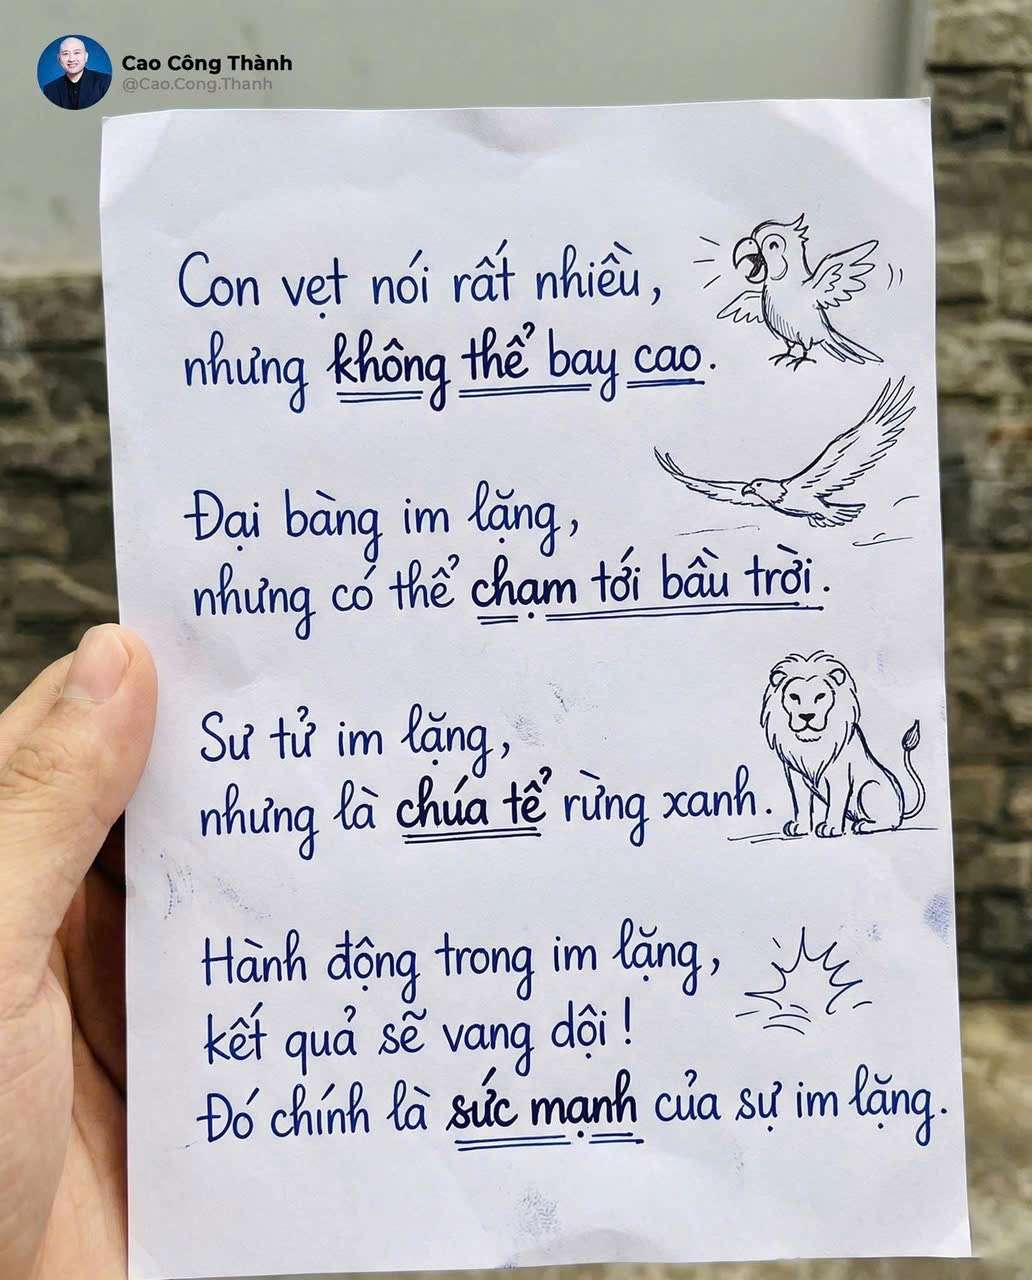 Cao Công Thành
@Cao.Cong.Thanh
Con vẹt nói rất nhiều,
nhưng không thể bay cao.
Đại bàng im lặng,
nhưng có thể chạm tới bầu trời.
Sư tử im lặng,
nhưng là chúa tể rừng xanh.
Hành động trong im lặng,
kết quả sẽ vang dội!
Đó chính là sức mạnh của sự im lặng.